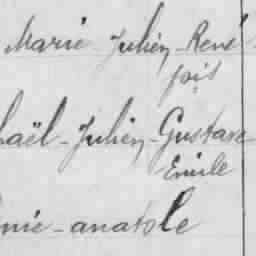 Marie Julien-René
haël-Julien-Gustave
Emile
nie-anatole